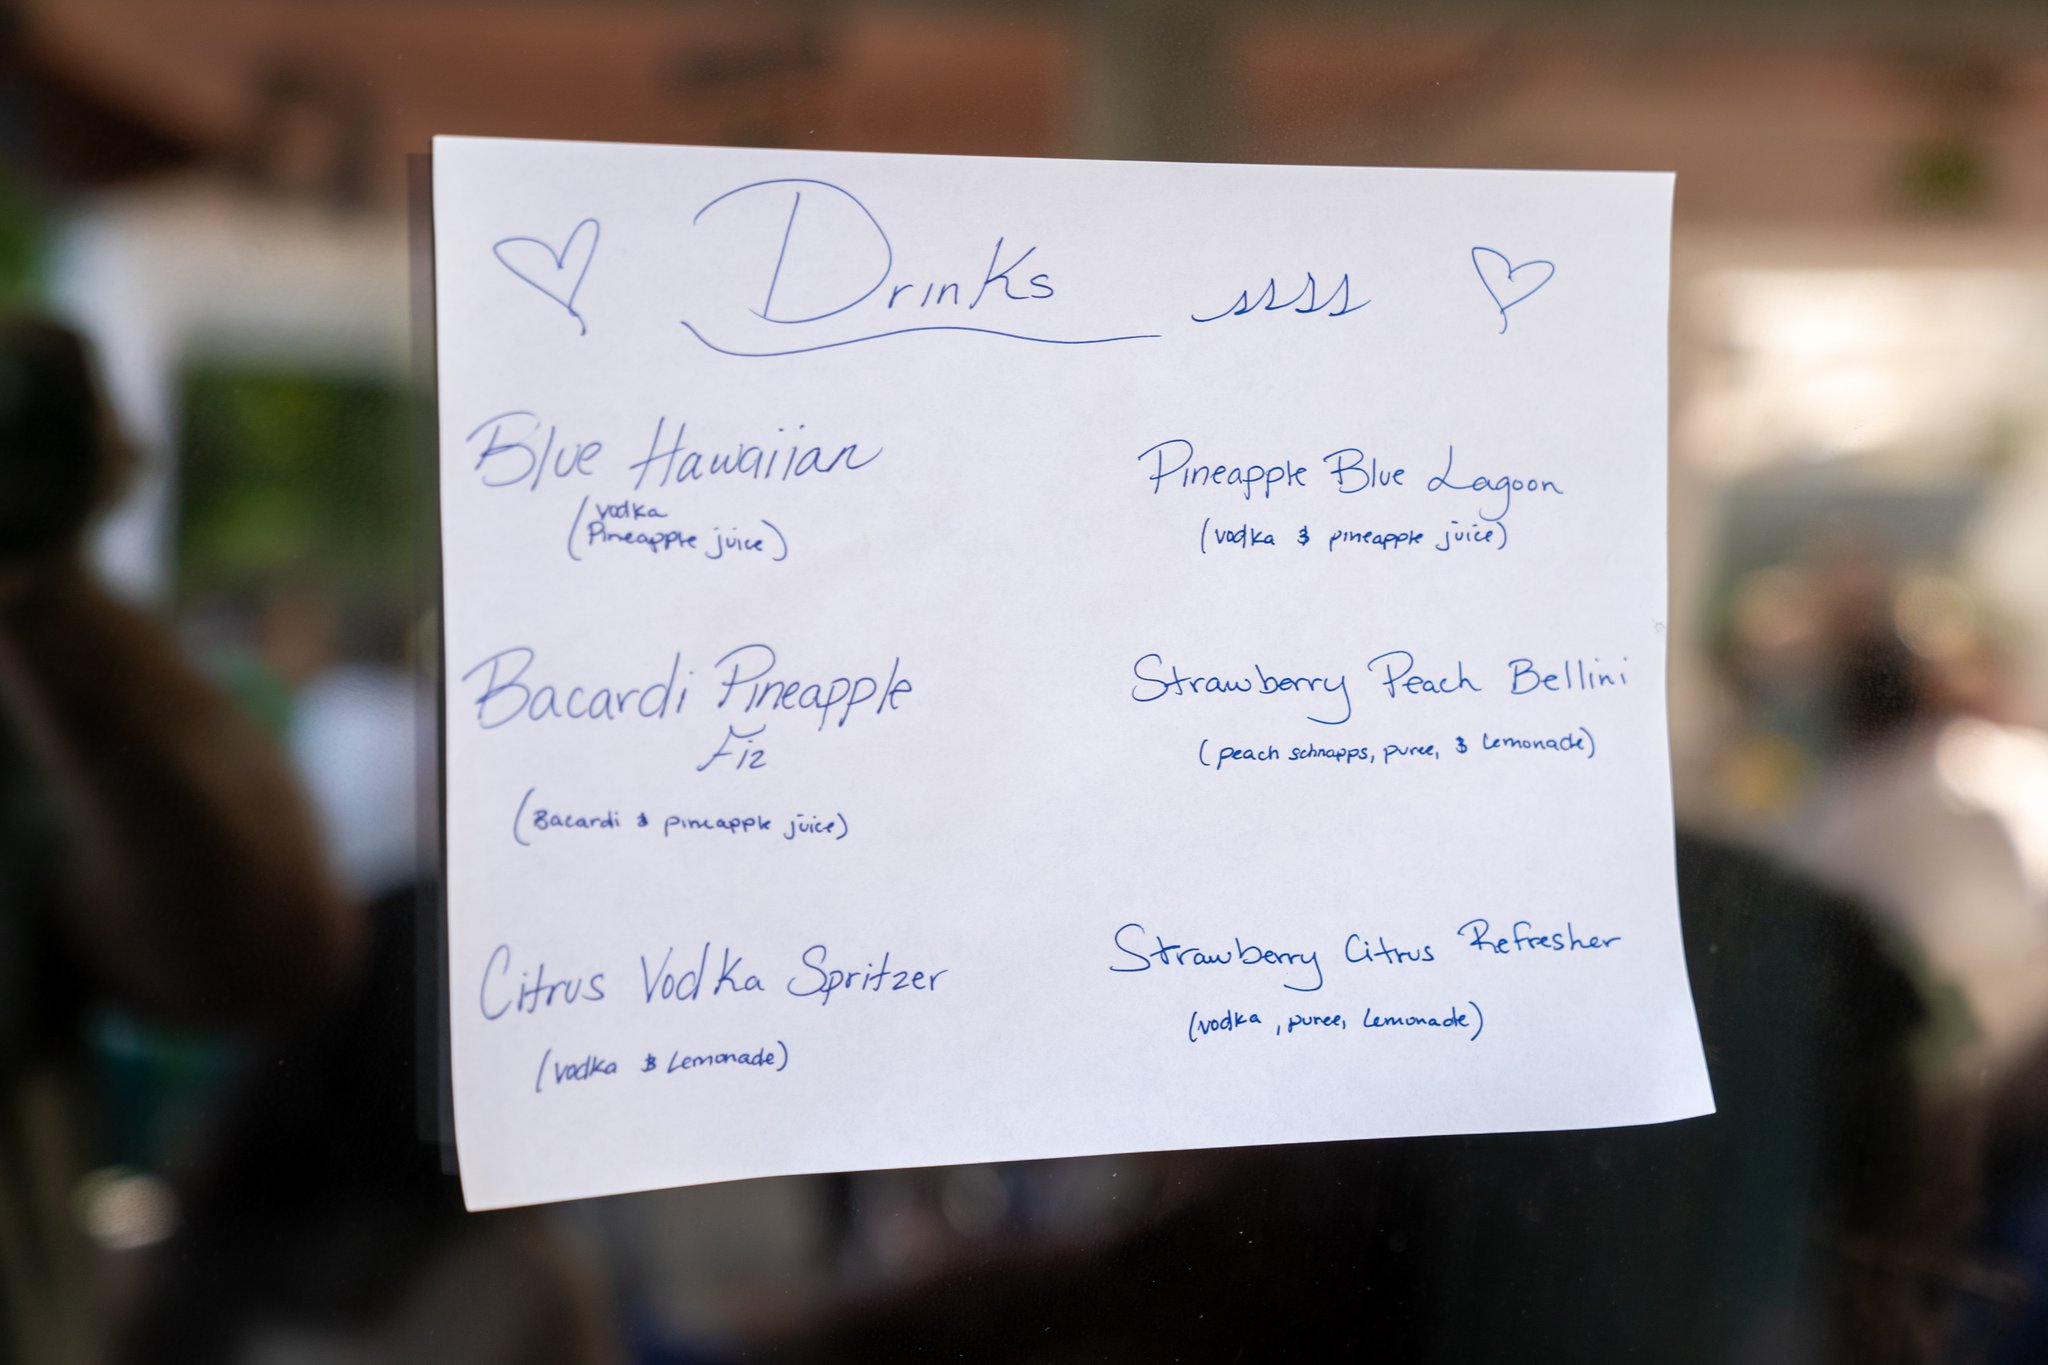 Drinks ssss
Blue Hawaiian
(vodka
Pineapple juice)
Bacardi Pineapple
Fiz
(Bacardi & pineapple juice)
Citrus Vodka Spritzer
(vodka & Lemonade)
Pineapple Blue Lagoon
(vodka & pineapple juice)
Strawberry Peach Bellini
(peach schnapps, puree, & Lemonade)
Strawberry Citrus Refresher
(vodka, puree, Lemonade)